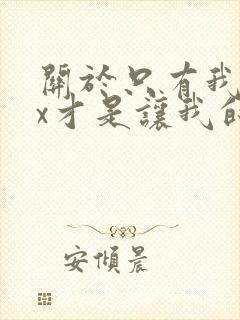 關於只有我
x才是讓我的
安傾晨